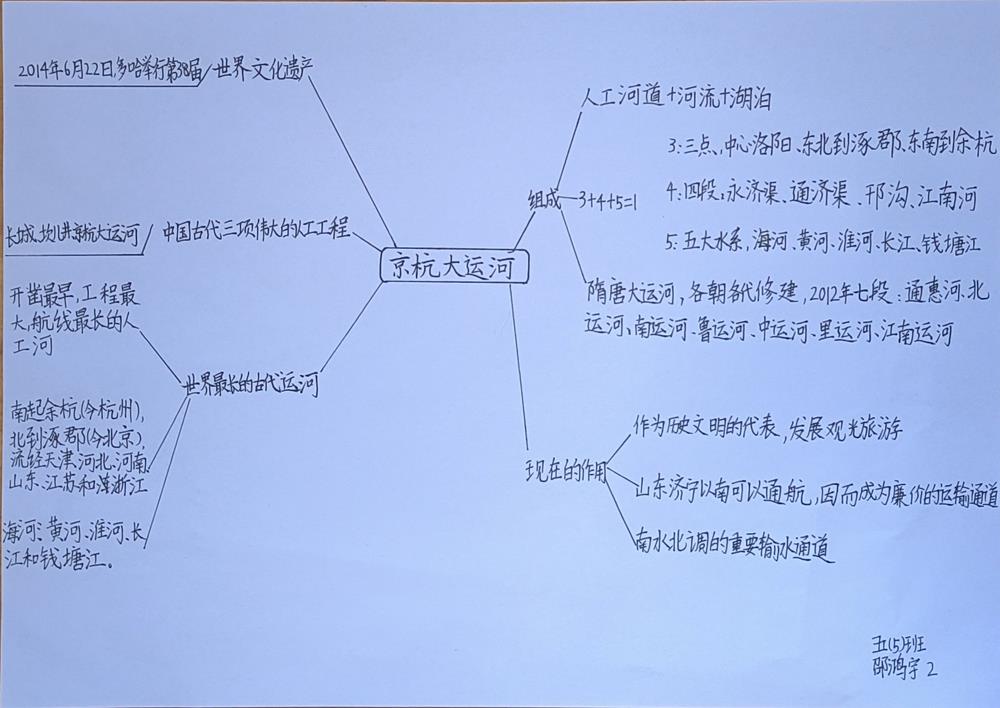 2014年6月22日,多哈举行第38届
世界文化遗产
长城、坎儿井京杭大运河
中国古代三项伟大的人工工程
开凿最早,工程最
大,航线最长的人
工河
世界最长的古代运河
南起余杭(今杭州),
北到涿郡(今北京),
流经天津、河北、河南
山东、江苏和浙江
海河、黄河、淮河、长
江和钱塘江。
京杭大运河
组成
人工河道+河流+湖泊
3+4+5=1
3:三点,中心洛阳、东北到涿郡、东南到余杭
4:四段:永济渠、通济渠、邗沟、江南河
5:五大水系,海河、黄河、淮河、长江、钱塘江
隋唐大运河,各朝各代修建,2012年七段:通惠河、北
运河、南运河、鲁运河、中运河、里运河、江南运河
现在的作用
作为历史文明的代表,发展观光旅游
山东济宁以南可以通航,因而成为廉价的运输通道
南水北调的重要输水通道
五(5)班
邵鸿宇 2